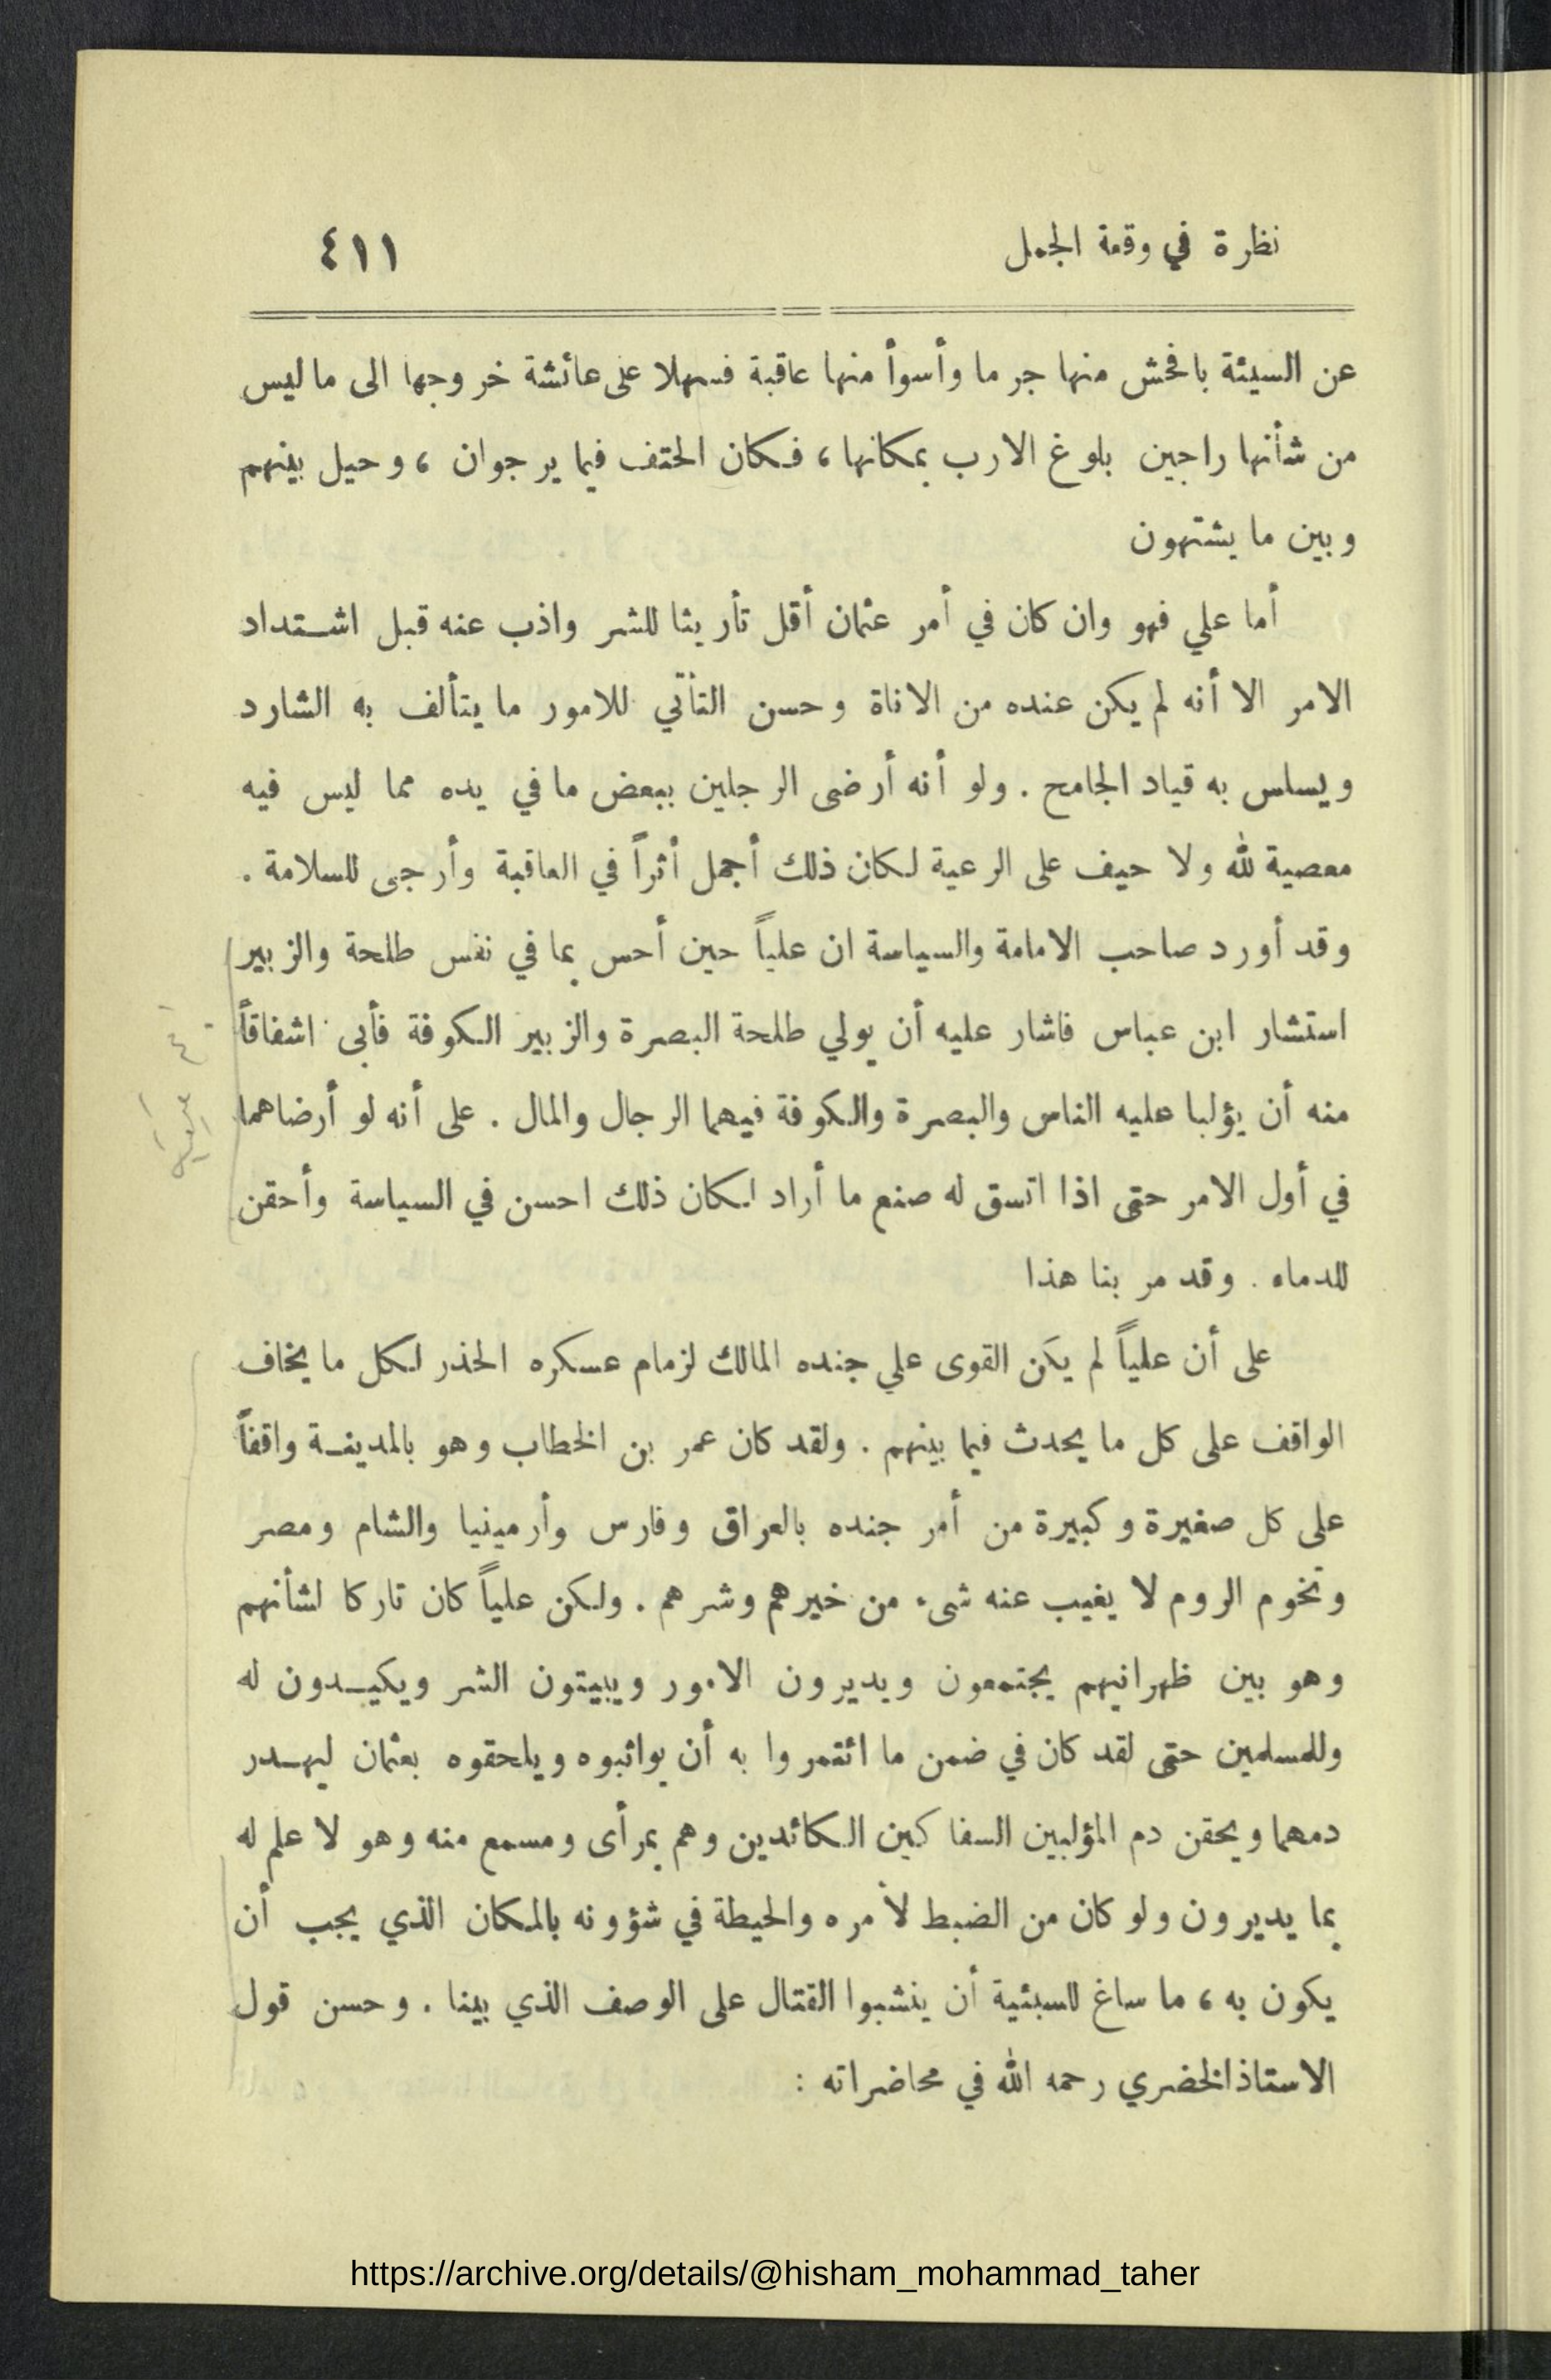 نظرة في وقعة الجمل
٤١١
عن السيئة بافحش منها جرما وأسوأ منها عاقبة فسهلا على عائشة خروجها الى ما ليس
من شأنها راجين بلوغ الارب بمكانها، فكان الحتف فيما يرجوان، وحيل بينهم
وبين ما يشتهون
أما علي فهو وان كان في أمر عثمان أقل تأريثا للشر واذب عنه قبل اشتداد
الامر الا أنه لم يكن عنده من الاناة وحسن التأتي للامور ما يتألف به الشارد
ويسلس به قياد الجامح. ولو أنه أرضى الرجلين ببعض ما في يده مما ليس فيه
معصية لله ولا حيف على الرعية لكان ذلك أجمل أثراً في العاقبة وأرجى للسلامة.
وقد أورد صاحب الامامة والسياسة ان علياً حين أحس بما في نفس طلحة والزبير
استشار ابن عباس فاشار عليه أن يولي طلحة البصرة والزبير الكوفة فأبى اشفاقاً
منه أن يؤلبا عليه الناس والبصرة والكوفة فيهما الرجال والمال. على أنه لو أرضاهما
في أول الامر حتى اذا اتسق له صنع ما أراد لكان ذلك احسن في السياسة وأحقن
للدماء. وقد مر بنا هذا
على أن علياً لم يكن القوى علي جنده المالك لزمام عسكره الحذر لكل ما يخاف
الواقف على كل ما يحدث فيما بينهم. ولقد كان عمر بن الخطاب وهو بالمدينة واقفاً
على كل صغيرة وكبيرة من أمر جنده بالعراق وفارس وأرمينيا والشام ومصر
وتخوم الروم لا يغيب عنه شىء من خيرهم وشرهم. ولكن علياً كان تاركا لشأنهم
وهو بين ظهرانيهم يجتمعون ويديرون الامور ويبيتون الشر ويكيدون له
وللمسلمين حتى لقد كان في ضمن ما ائتمروا به أن يواثبوه ويلحقوه بعثمان ليهدر
دمهما ويحقن دم المؤلبين السفاكين الكائدين وهم بمرأى ومسمع منه وهو لا علم له
بما يديرون ولو كان من الضبط لأمره والحيطة في شؤونه بالمكان الذي يجب أن
يكون به، ما ساغ للسبئية أن ينشبوا القتال على الوصف الذي بينا. وحسن قول
الاستاذ الخضري رحمه الله في محاضراته :
https://archive.org/details/@hisham_mohammad_taher